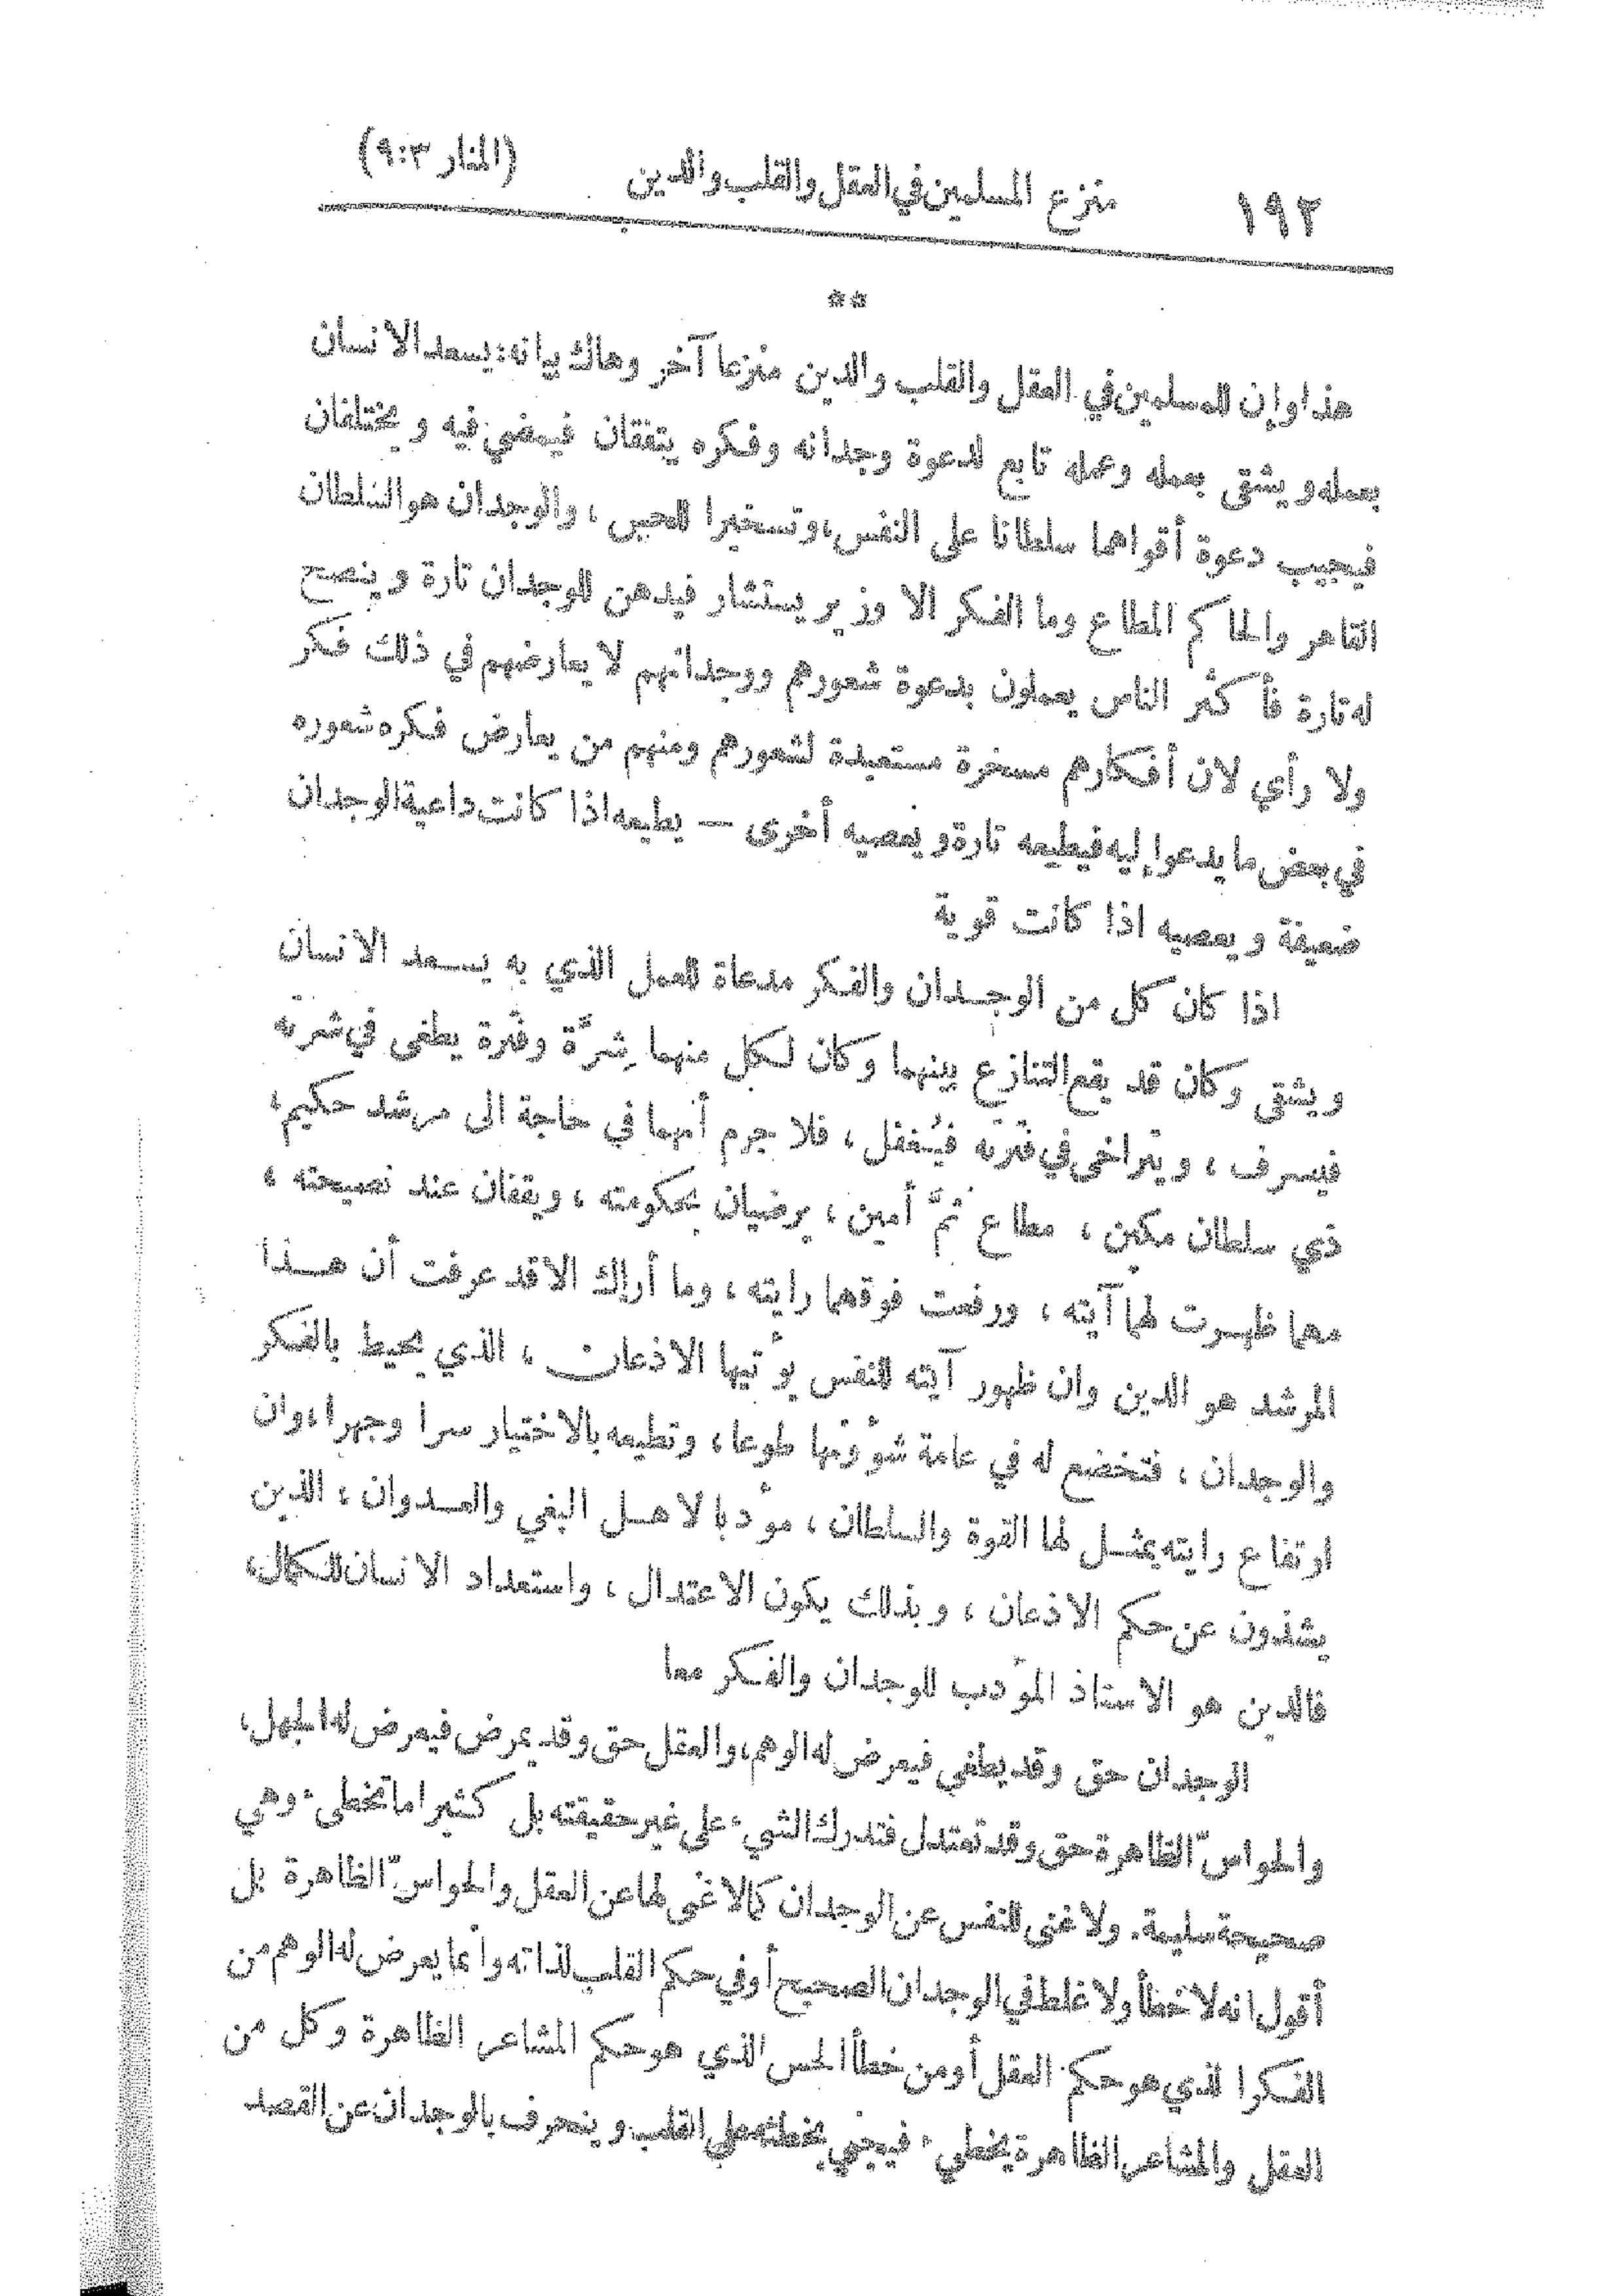 ١٩٢ منزع المسلمين في العقل والقلب والدين (المنار ٩:٣)
**
هذا وإن للمسلمين في العقل والقلب والدين منزعا آخر وهاك بيانه: يسعد الانسان
بعمله ويشقى بعمله وعمله تابع لدعوة وجدانه وفكره يتفقان فيمضي فيه ويختلفان
فيجيب دعوة أقواهما سلطانا على النفس، وتسخيرا للحس، والوجدان هو السلطان
القاهر والحاكم المطاع وما الفكر الا وزير يستشار فيدهن للوجدان تارة وينصح
له تارة فأكثر الناس يعملون بدعوة شعورهم ووجدانهم لا يعارضهم في ذلك فكر
ولا رأي لان أفكارهم مسخرة مستعبدة لشعورهم ومنهم من يعارض فكره شعوره
في بعض ما يدعوا إليه فيطيعه تارة ويعصيه أخرى — يطيعه اذا كانت داعية الوجدان
ضعيفة ويعصيه اذا كانت قوية
اذا كان كل من الوجدان والفكر مدعاة للعمل الذي به يسعد الانسان
ويشقى وكان قد يقع التنازع بينهما وكان لكل منهما شِرَّة وفترة يطغى في شرته
فيسرف، ويتراخى في فترته فيُغفل، فلا جرم أنهما في حاجة الى مرشد حكيم،
ذي سلطان مكين، مطاع ثمَّ أمين، يرضيان بحكومته، ويقفان عند نصيحته،
مهما ظهرت لهما آيته، ورفعت فوقهما رايته، وما أراك الا قد عرفت أن هذا
المرشد هو الدين وان ظهور آيته للنفس يؤتيها الاذعان، الذي يحيط بالفكر
والوجدان، فتخضع له في عامة شؤونها طوعا، وتطيعه بالاختيار سرا وجهرا، وان
ارتفاع رايته يمثل لها القوة والسلطان، مؤدبا لاهل البغي والعدوان، الذين
يشذون عن حكم الاذعان، وبذلك يكون الاعتدال، واستعداد الانسان للكمال،
فالدين هو الاستاذ المؤدب للوجدان والفكر معا
الوجدان حق وقد يطغي فيعرض له الوهم، والعقل حق وقد يمرض فيعرض له الجهل،
والحواسّ الظاهرة حق وقد تعتدل فتدرك الشيء على غير حقيقته بل كثيرا ما تخطىء وهي
صحيحة سليمة. ولا غنى للنفس عن الوجدان كما لا غنى لها عن العقل والحواسّ الظاهرة بل
أقول انه لا خطأ ولا غلط في الوجدان الصحيح أو في حكم القلب لذاته وأنما يعرض له الوهم من
الفكر الذي هو حكم العقل أو من خطأ الحس الذي هو حكم المشاعر الظاهرة وكل من
العقل والمشاعر الظاهرة يخطيء فيجني بخطئه على القلب وينحرف بالوجدان عن القصد